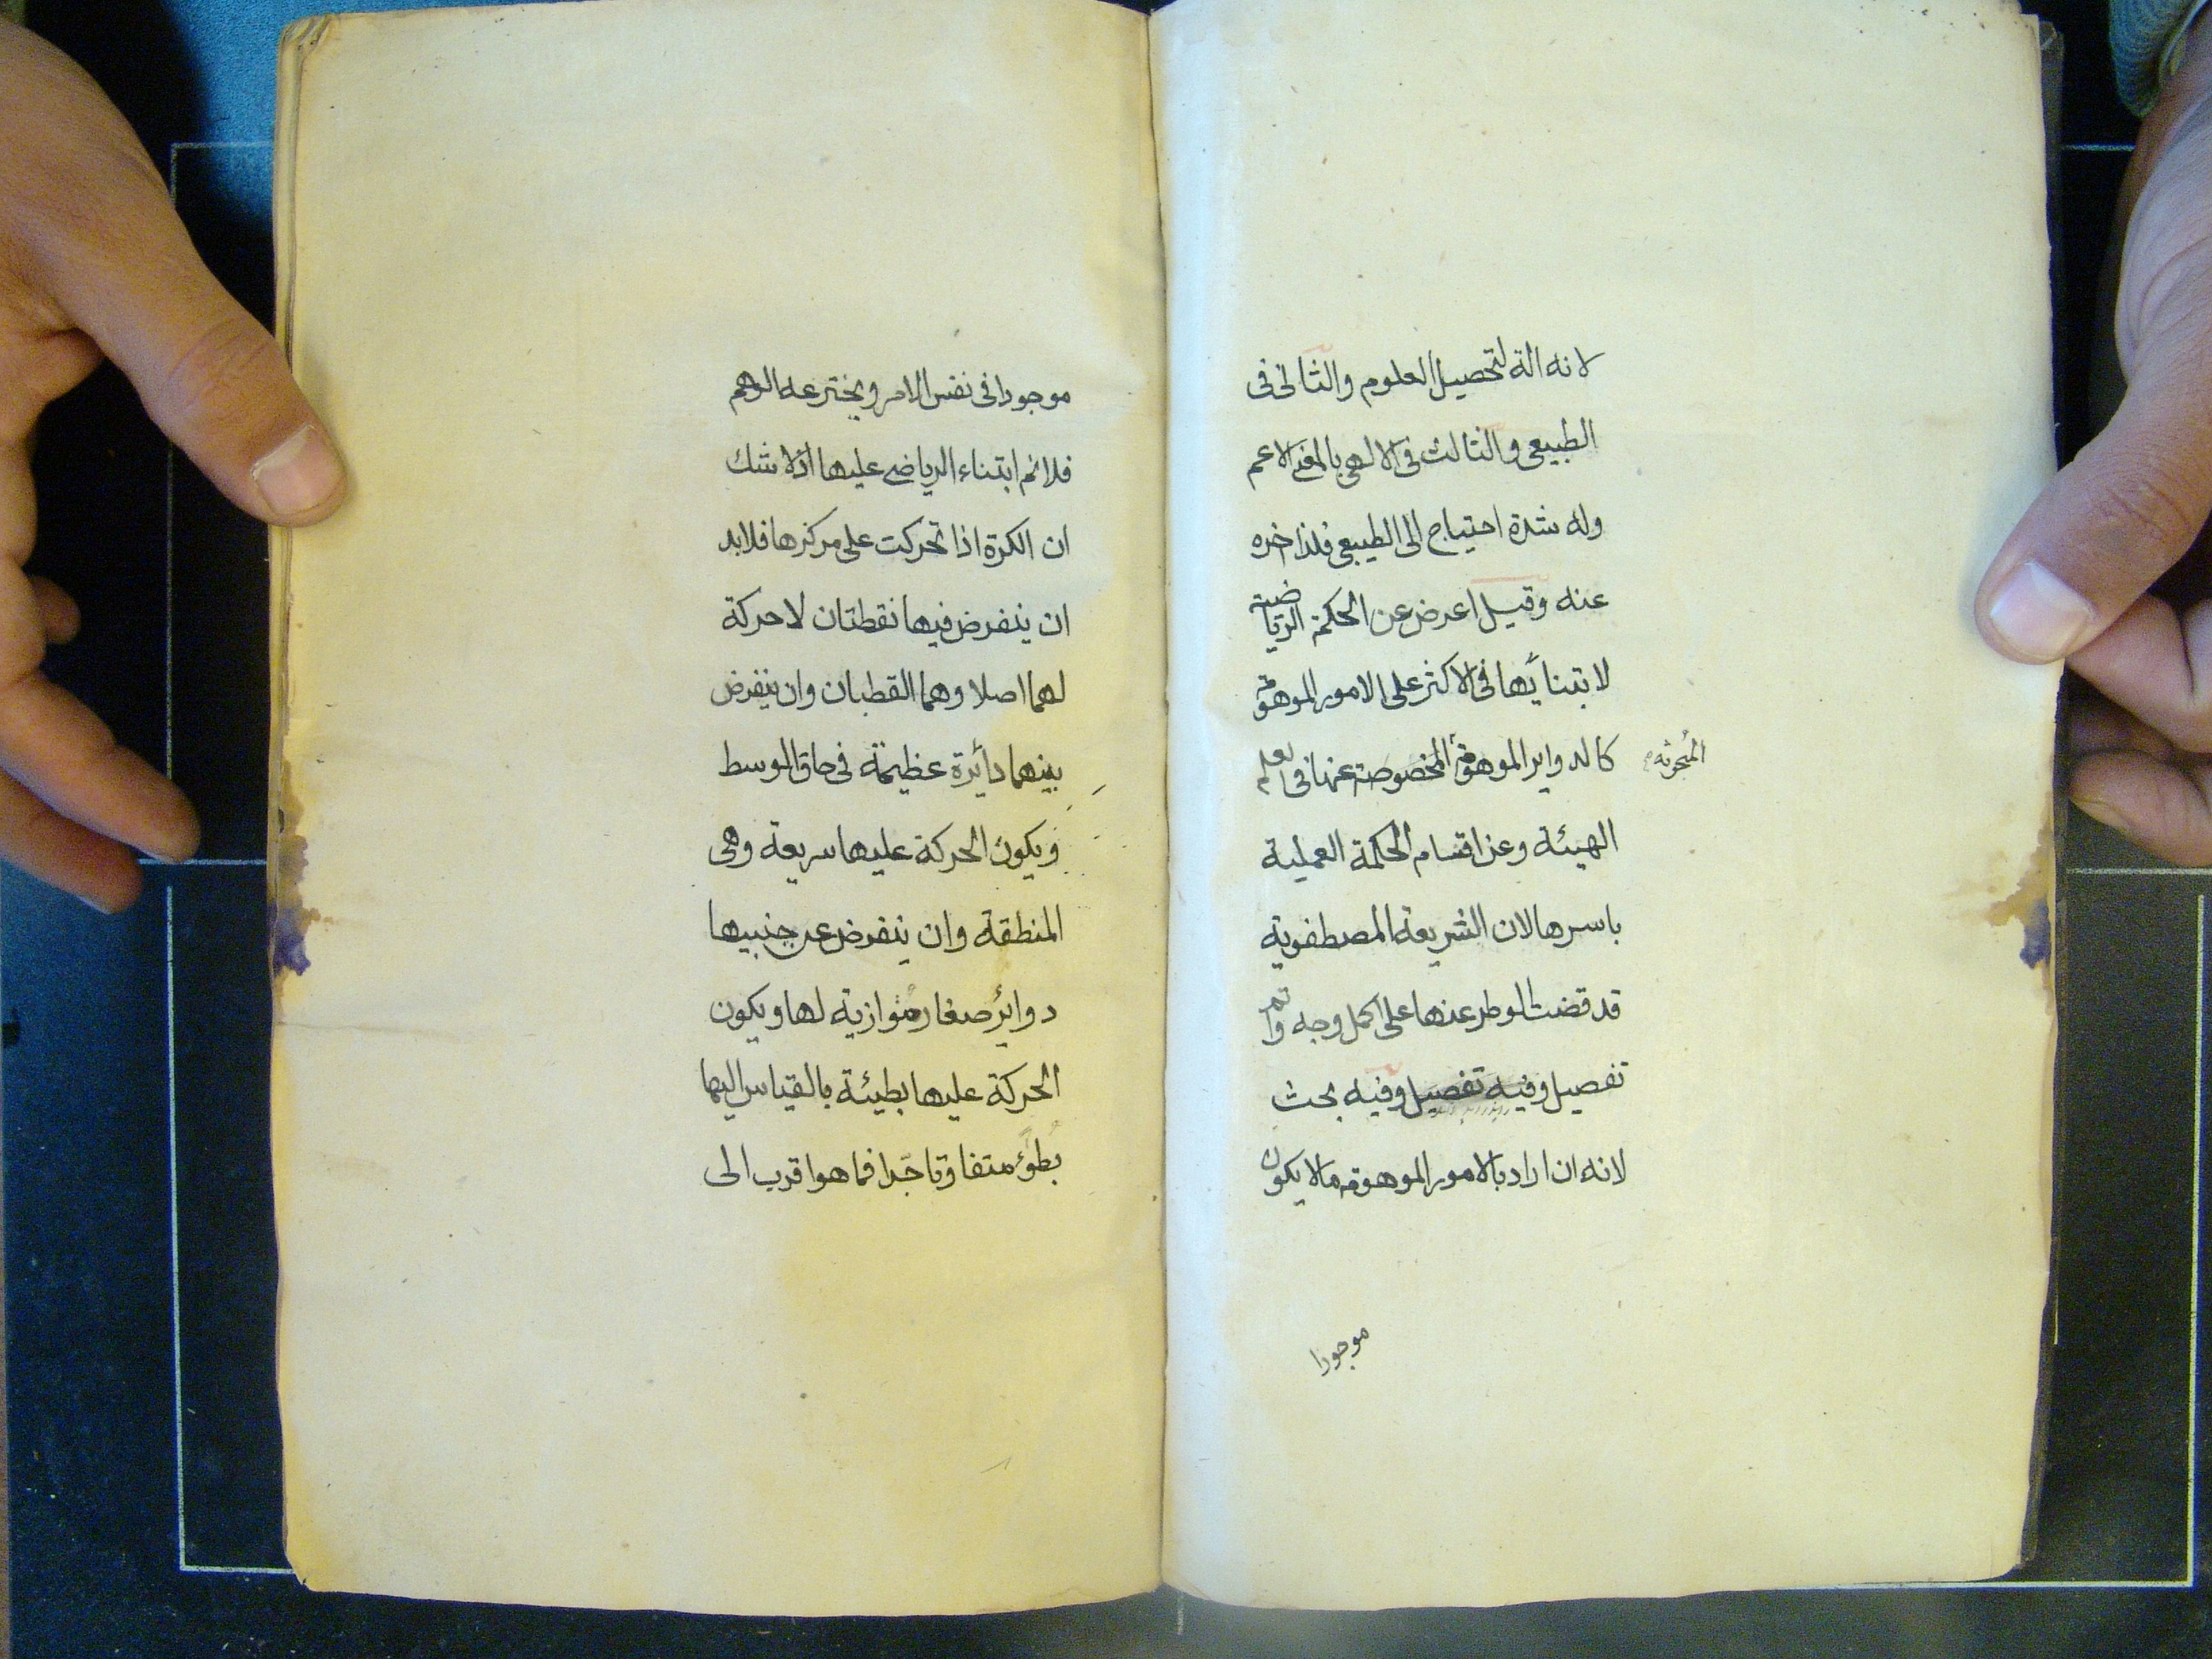 لانه الة لتحصيل العلوم والثانى فى
الطبيعى والثالث فى الالهى بالمعنى الاعم
وله شدة احتياج الى الطبيعى فلذا اخره
عنه وقيل اعرض عن الحكمة الرياضية
لابتنائها فى الاكثر على الامور الموهومة
كالدواير الموهومة المخصوصة عنها فى العلم
المبحوثة
الهيئة وعن اقسام الحكمة العملية
باسرها لان الشريعة المصطفوية
قد قضت الوطر عنها على اكمل وجه واتم
تفصيل وفيه تفصيل وفيه بحث
لانه ان اراد بالامور الموهومة مالا يكون
موجودا
موجودا فى نفس الامر ويخترعه الوهم
فلانم ابتناء الرياضى عليها اذ لا شك
ان الكرة اذا تحركت على مركزها فلابد
ان ينفرض فيها نقطتان لا حركة
لهما اصلا وهما القطبان وان ينفرض
بينهما دائرة عظيمة فى حاق الوسط
ويكون الحركة عليها سريعة وهى
المنطقة وان ينفرض عن جنبيها
دوائر صغار متوازية لها ويكون
الحركة عليها بطيئة بالقياس اليها
بطؤ متفاوتا جدا فما هو اقرب الى